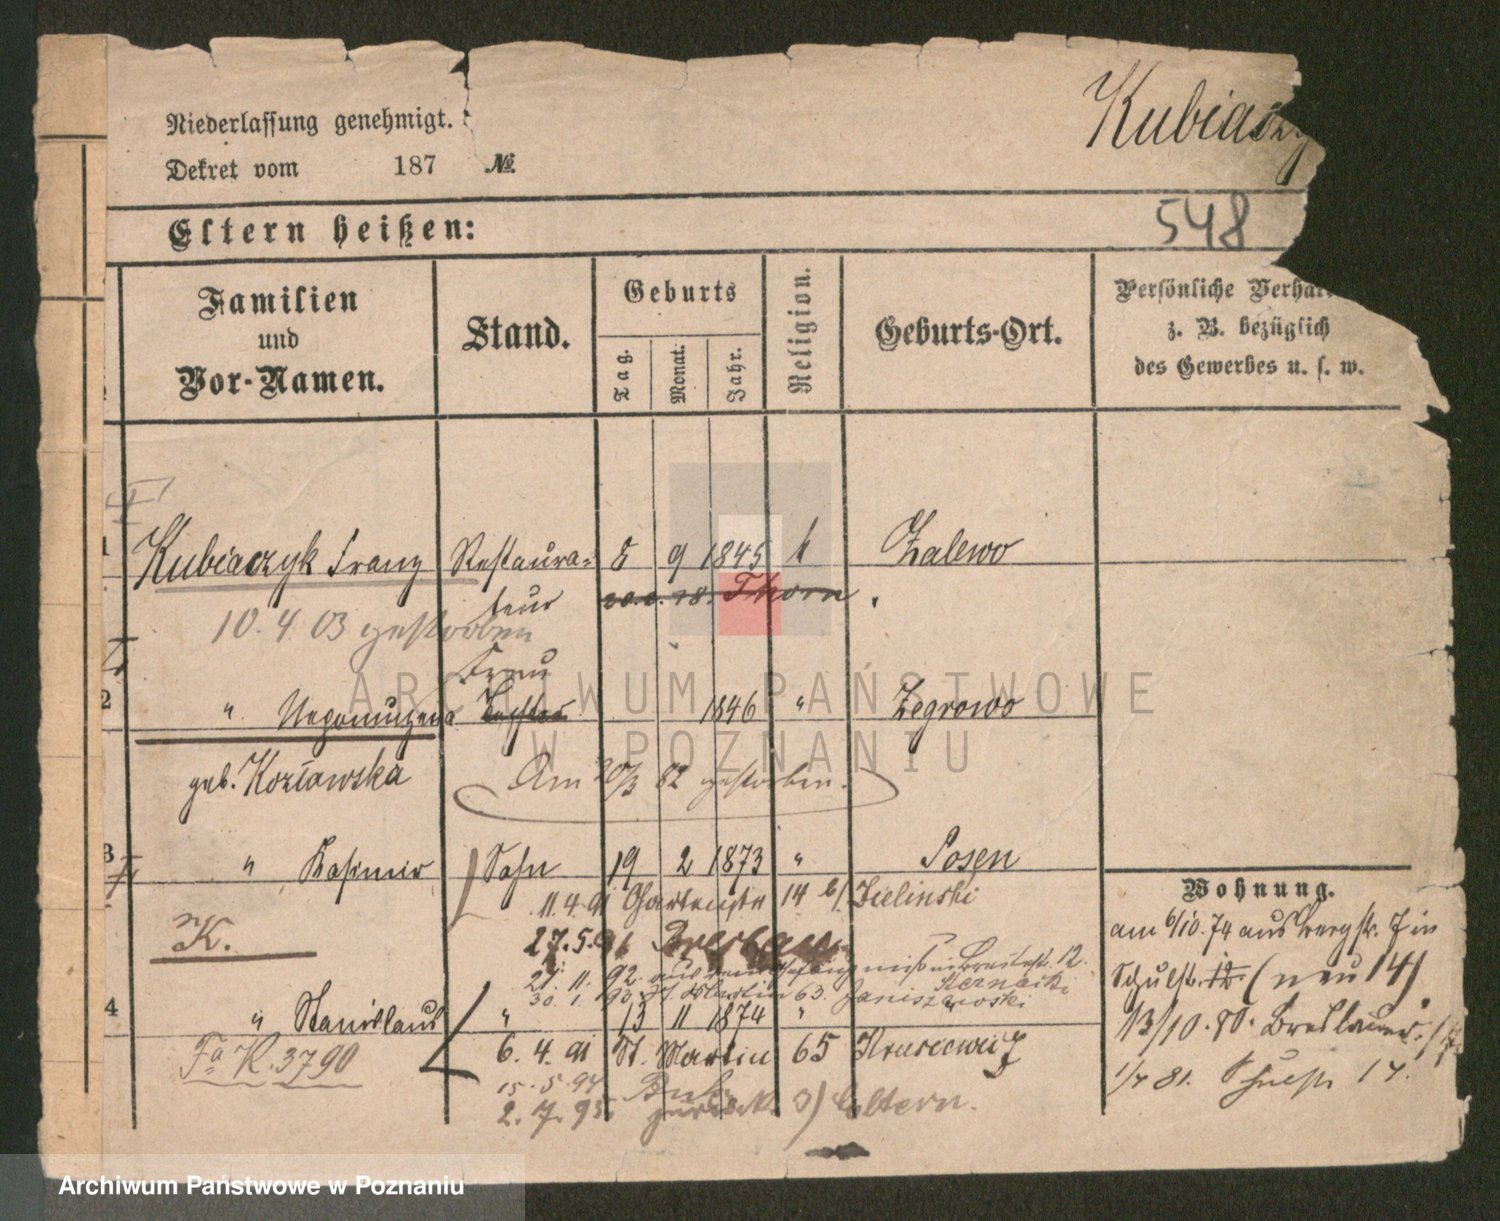 Niederlassung genehmigt.
Dekret vom 187 №
Kubiaczy
Eltern heißen:
548
Familien
und
Vor-Namen.
Stand.
Geburts
Tag.
Monat.
Jahr.
Religion.
Geburts-Ort.
Persönliche Verhält
z. B. bezüglich
des Gewerbes u. s. w.
1 Kubiaczyk Franz Restaura= 8 9 1845 k Zalewo
teur Thorn
10. 4. 03 gestorben
Frau
2 " Nepomuzena 1846 " Zegrowo
geb. Koziawska
Am 20/3 82 gestorben.
3 " Kasimir Sohn 19 2 1873 " Posen
11. 4. 91 Gartenstr 14 b/ Zielinski
27. 5. 91 Breslau
K.
21. 11. 92. aus dem Gefängniß in Breitestr. 12.
Kernacki
30. 1. 93. St. Martin 63. Janiszewski
4 " Stanislaus " 13 11 1874 "
Fa K. 3790
6. 4. 91 St. Martin 65 Krusiewicz
15. 5. 94 Buk
2. 7. 95 zurück 3) Eltern.
Wohnung.
am 6/10. 74 aus Bergstr. 7 in
Schulstr. 12. (neu 14)
13/10. 80. Breslauer
1/4 81. Schulstr 14.
ARCHIWUM PAŃSTWOWE
W POZNANIU
Archiwum Państwowe w Poznaniu